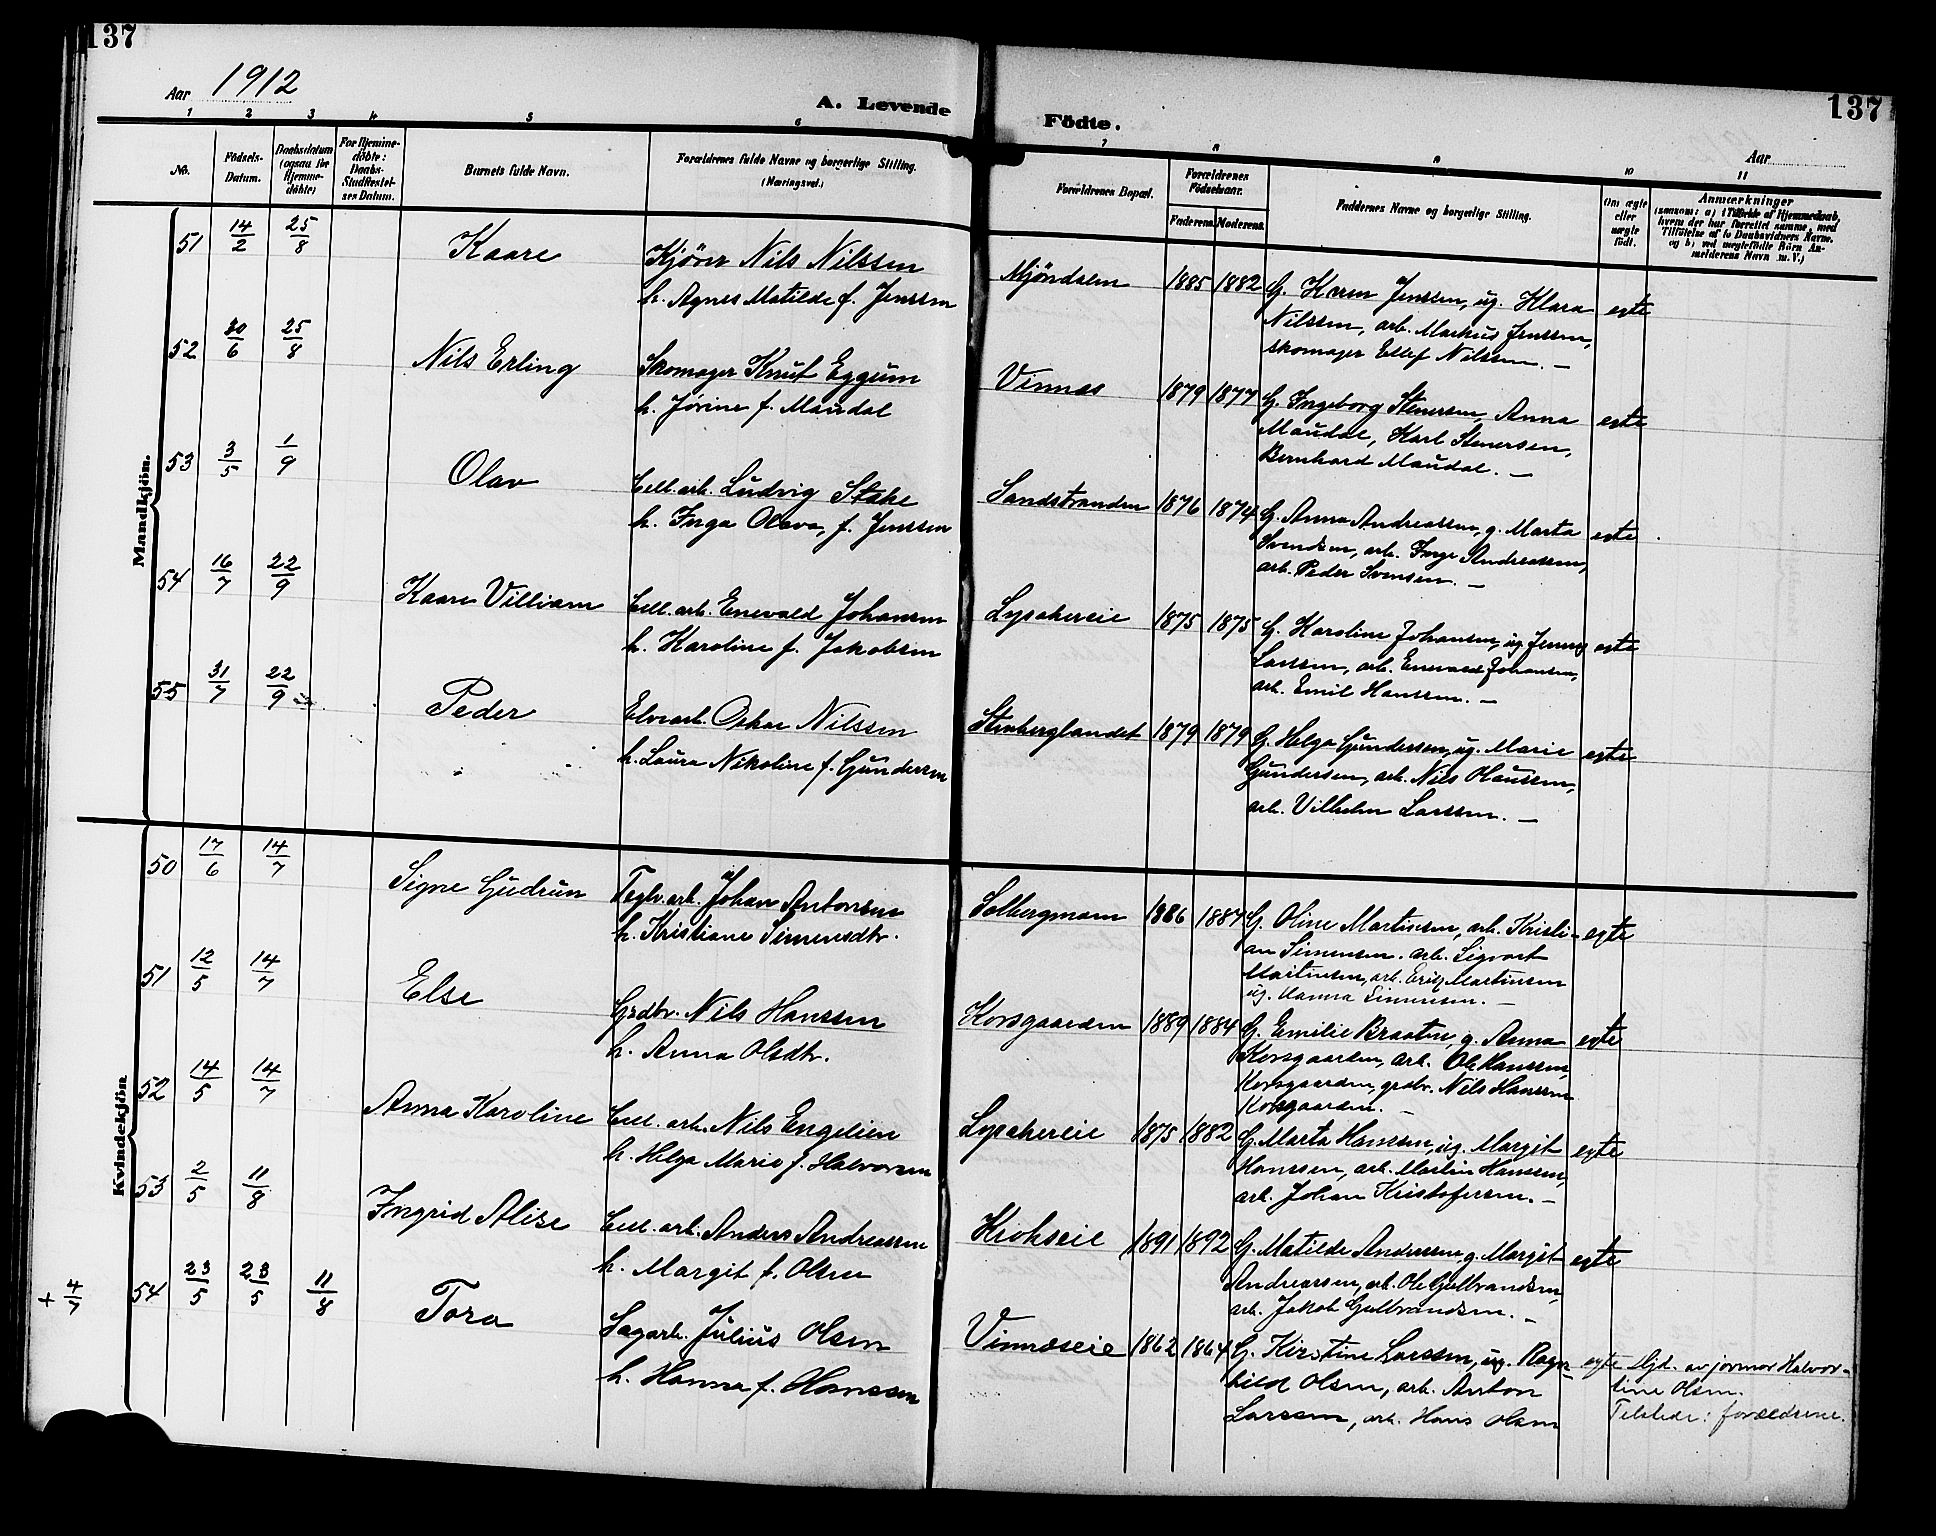 137
Aar 1912
A. Levende
Födte.
137
Aar
1 2 3 4 5 6 7 8 9 10 11
No.
Födsels-Datum.
Daabsdatum (ogsaa for Hjemmedöbte)
For Hjemmedöbte: Daabs-Stadfestelses Datum.
Barnets fulde Navn.
Forældrenes fulde Navne og borgerlige Stilling. (Næringsvei.)
Forældrenes Bopæl.
Forældrenes Födselsaar.
Faderens. Moderens.
Faddernes Navne og borgerlige Stilling.
Om ægte eller uægte födt.
Anmærkninger
Mandkjön.
51 14/2 25/8 Kaare Kjörer Nils Nilssen
h. Agnes Matilde f. Jenssen
Mjöndalen 1885 1882 G. Karen Jenssen, ug. Klara egte
Nilssen, arb. Markus Jenssen,
skomager Ellef Nilssen. —
52 30/6 25/8 Nils Erling Skomager Knut Eggum
h. Jörine f. Maudal
Vinnæs 1879 1877 G. Ingeborg Stenersen, Anna egte
Maudal, Karl Stenersen,
Bernhard Maudal. —
53 3/5 1/9 Olav Cell. arb. Ludvig Stake
h. Inga Olava, f. Jenssen
Sandstranden 1876 1874 G. Anna Andreassen, g. Marta egte
Svendsen, arb. Inge Andreassen,
arb. Peder Svensen. —
54 16/7 22/9 Kaare Villiam Cell. arb. Enevald Johansen
h. Karoline f. Jakobsen
Lysakereie 1875 1875 G. Karoline Johansen, ug. Jenny egte
Larssen, arb. Enevald Johansen,
arb. Emil Hanssen. —
55 31/7 22/9 Peder Elvearb. Oskar Nilssen
h. Laura Nikoline f. Gundersen
Stenberglandet 1879 1879 G. Helga Gundersen, ug. Marie egte
Gundersen, arb. Nils Olaussen,
arb. Vilhelm Larssen. —
Kvindekjön
50 17/6 14/7 Signe Gudrun Teglv. arb. Johan Antonsen
h. Kristiane Simensdtr.
Solbergmoen 1886 1887 G. Oline Martinsen, arb. Kristi- egte
an Simensen. arb. Sigvart
Martinsen, arb. Erik Martinsen
ug. Hanna Simensen. —
51 12/5 14/7 Else Grdbr. Nils Hanssen
h. Anna Olsdtr.
Korsgaarden 1889 1884 G. Emilie Braaten, g. Anna egte
Korsgaarden, arb. Ole Hanssen,
Korsgaarden, grdbr. Nils Hanssen
Korsgaarden. —
52 14/5 14/7 Anna Karoline Cell. arb. Nils Engelien
h. Helga Marie f. Halvorsen
Lysakereie 1875 1882 G. Marta Hanssen, ug. Margit egte
Hanssen, arb. Martin Hanssen,
arb. Johan Kristofersen. —
53 2/5 11/8 Ingrid Alise Cell. arb. Anders Andreassen
h. Margit f. Olsen
Krokseie 1891 1892 G. Matilde Anderssen, g. Margit egte
Andreassen, arb. Ole Gulbrandsen,
arb. Jakob Gulbrandsen. —
+ 4/7 54 23/5 23/5 11/8 Tora Sagarb. Julius Olsen
h. Hanna f. Hanssen
Vinnæseie 1862 1864 G. Kirstine Larssen, ug. Ragn- egte Hjd. av jormor Halvor-
hild Olsen, arb. Anton tine Olsen.
Larssen, arb. Hans Olsen Tilstede: forældrene.